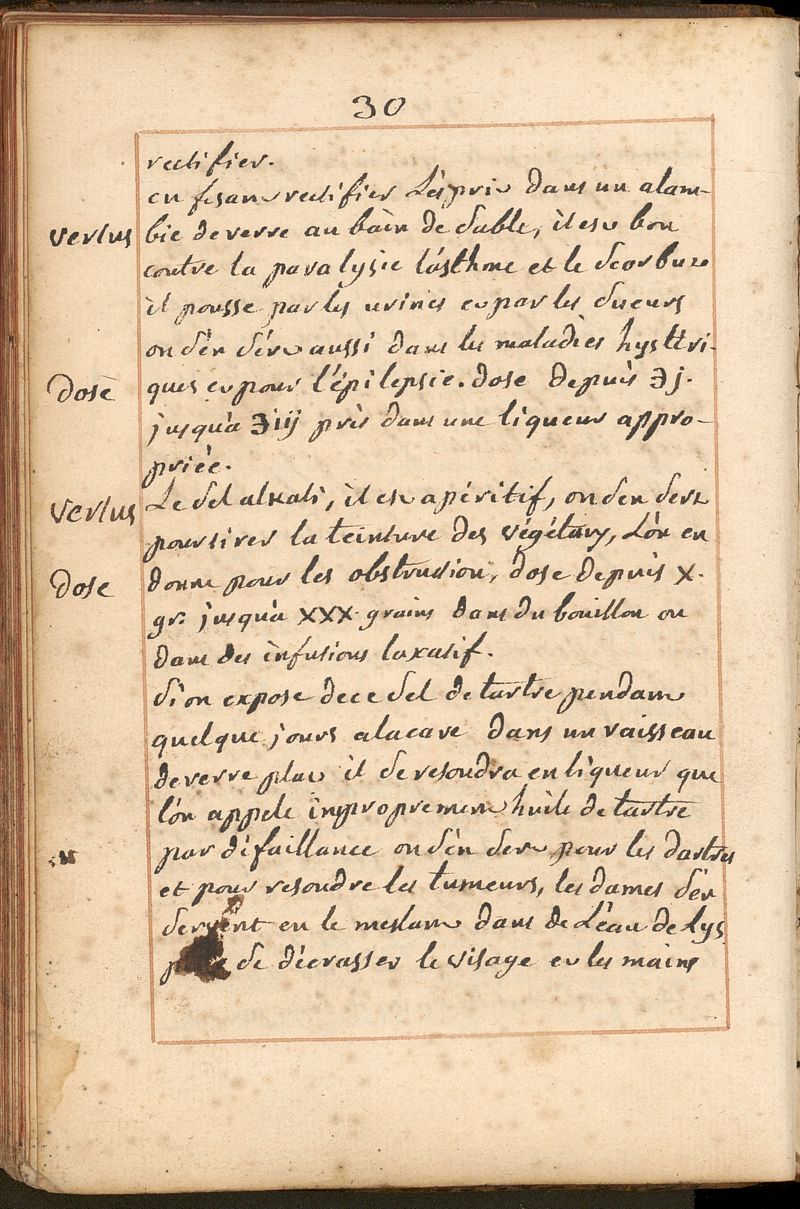 30
rectifier.
en fesant rectifier L'esprit dans un alam-
vertus
bic de verre au bain de sable, il est bon
contre la paralysie l'asthme et le scorbut
il pousse par les urines et par les sueurs
on s'en sert aussi dans les maladies hysteri-
dose
ques et pour l'épilepsie. dose depuis ℈j.
jusqu'a ʒiij pris dans une liqueur appro-
priée.
vertus
Le sel alkali, il est apéritif, on s'en sert
pour tirer la teinture des végétaux, L'on en
dose
donne pour les obstruction, dose depuis X.
gr. jusqu'a XXX grains dans du bouillon ou
dans des infusions laxatif.
si on expose de ce sel de tartre pendant
quelque jours a la cave dans un vaisseau
de verre plat il se resoudra en liqueur que
l'on appele improprement huile de tartre
par défaillance on s'en sert pour les dartres
et pour resoudre les tumeurs, les dames s'en
servent en le meslant dans de L'eau de lys
de décrasser le visage et les mains